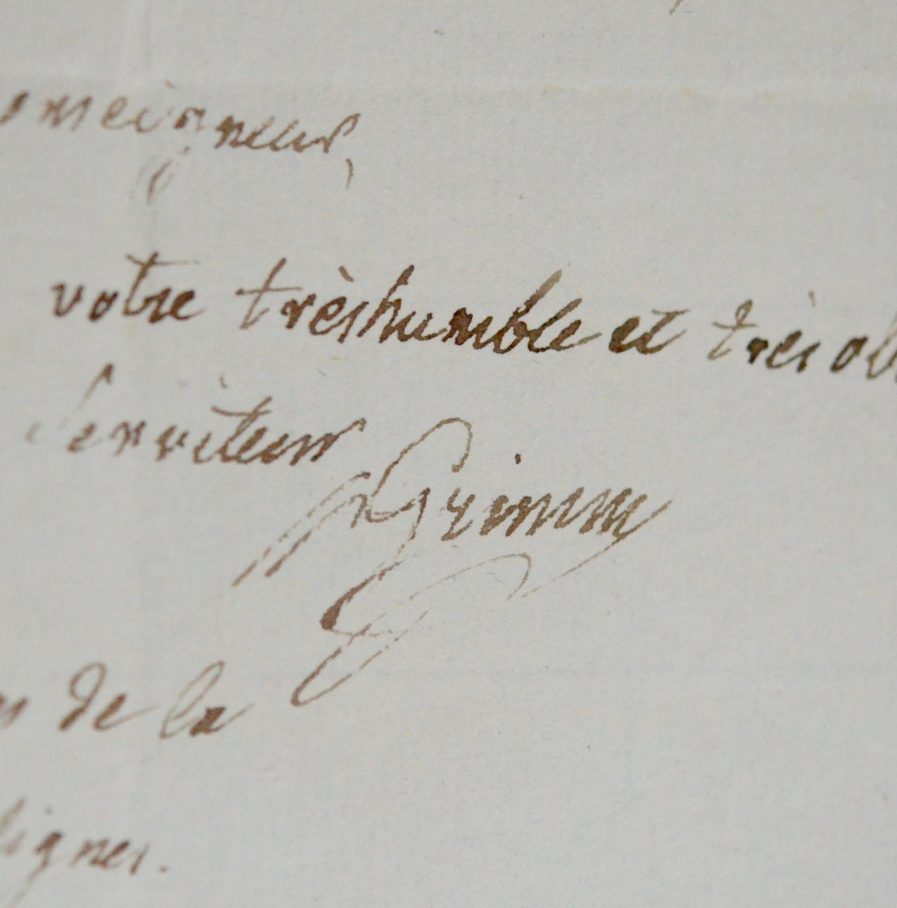 omeigneur,
votre trèshumble et très ob
Serviteur
Grimm
de la
lignes.